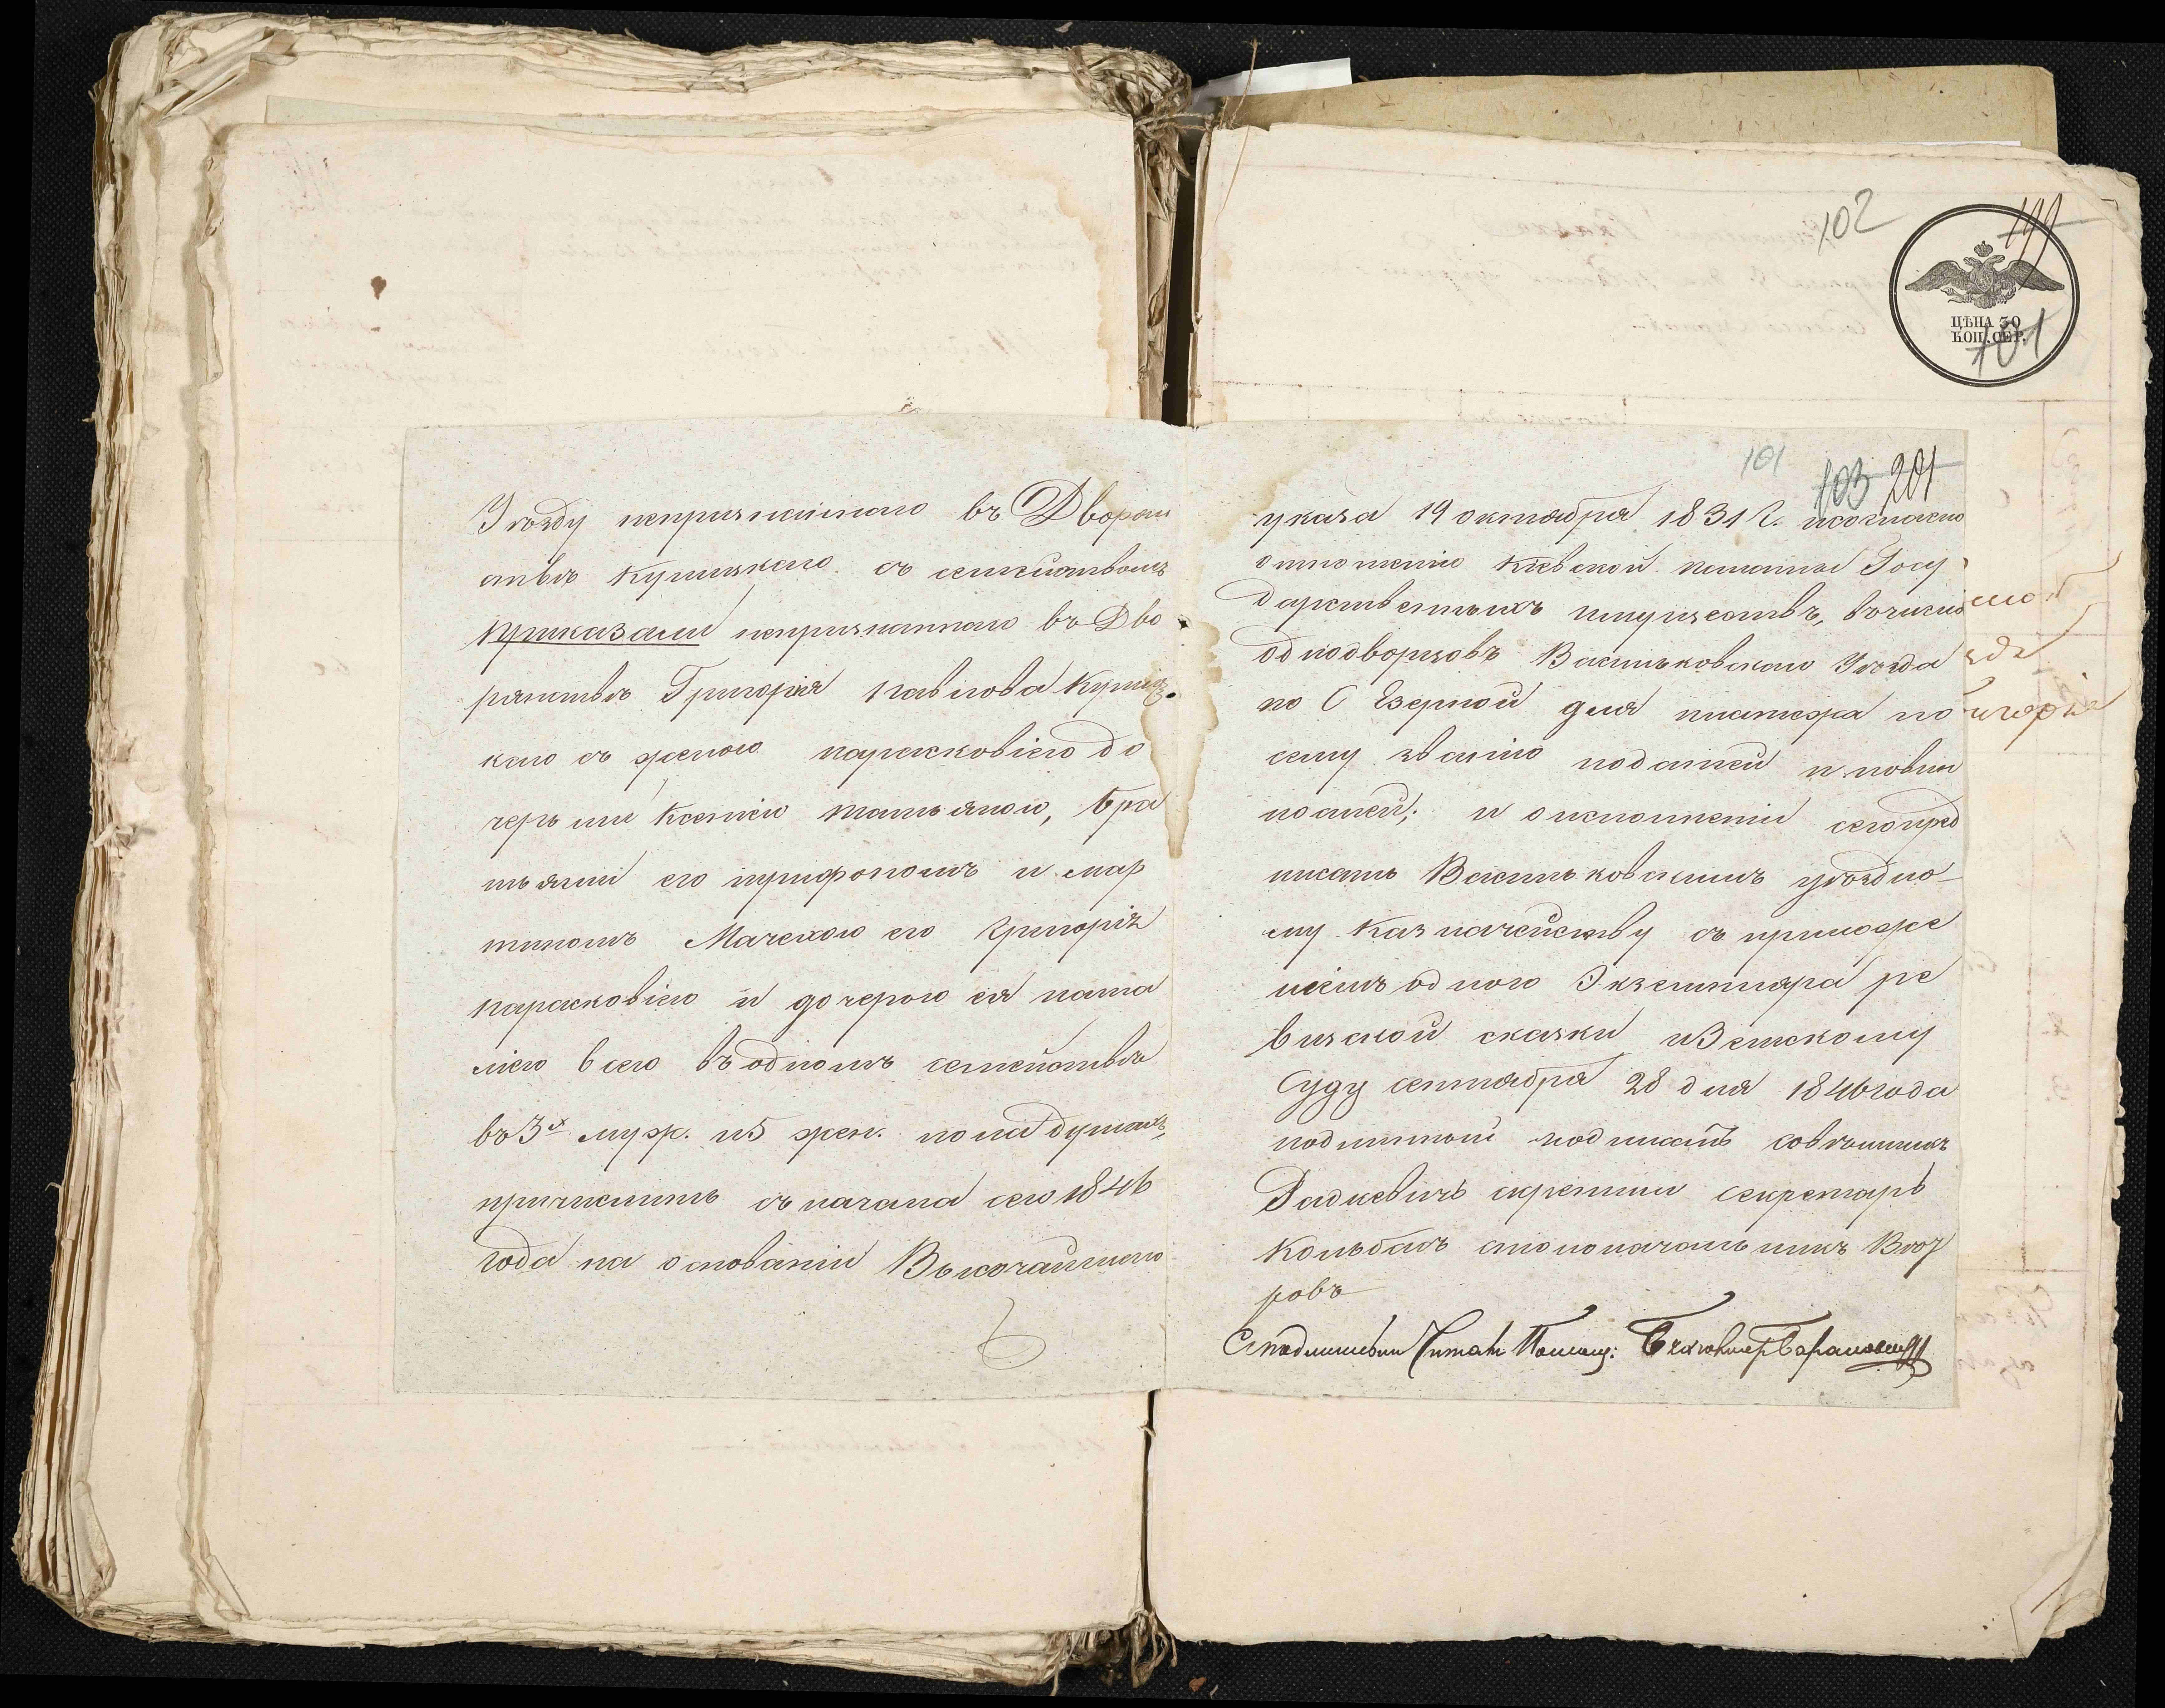 Уѣзду непризнаннаго въ Дворян
ствѣ Купицкаго съ семействомъ
приказали непризнаннаго въ Дво
рянствѣ Григорія Павлова Купиц
каго съ женою Парасковіею до
черьми Ксеніею Татьяною, бра
тьями его Трифономъ и Мар
тиномъ Мачехою его Григорія
Парасковіею и дочерью ея Ната
ліею всего въ одномъ семействѣ
въ 3х муж. и 5 жен. пола душахъ,
причислить съ начала сего 1846
года на основаніи Высочайшаго
102
199
ЦѢНА 30
КОП. СЕР.
101
101
103 201
указа 19 октября 1831 г. и согласно
отношенію Кіевской палаты Госу
дарственныхъ имуществъ, въ число
однодворцовъ Васильковскаго Уѣзда
по С Езерной для платежа по
сему званію податей и повин
ностей; и о исполненіи сего пред
писать Васильковскимъ уѣздно-
му Казначейству съ приложе
ніемъ одного Экземпляра ре
визской сказки и Земскому
Суду сентября 28 дня 1846 года
подлинной подписалъ совѣтникъ
Радкевичъ скрепили секретарь
Кольбасъ столоначальникъ
ровъ
Съ подлиннымъ Читалъ Помощ: